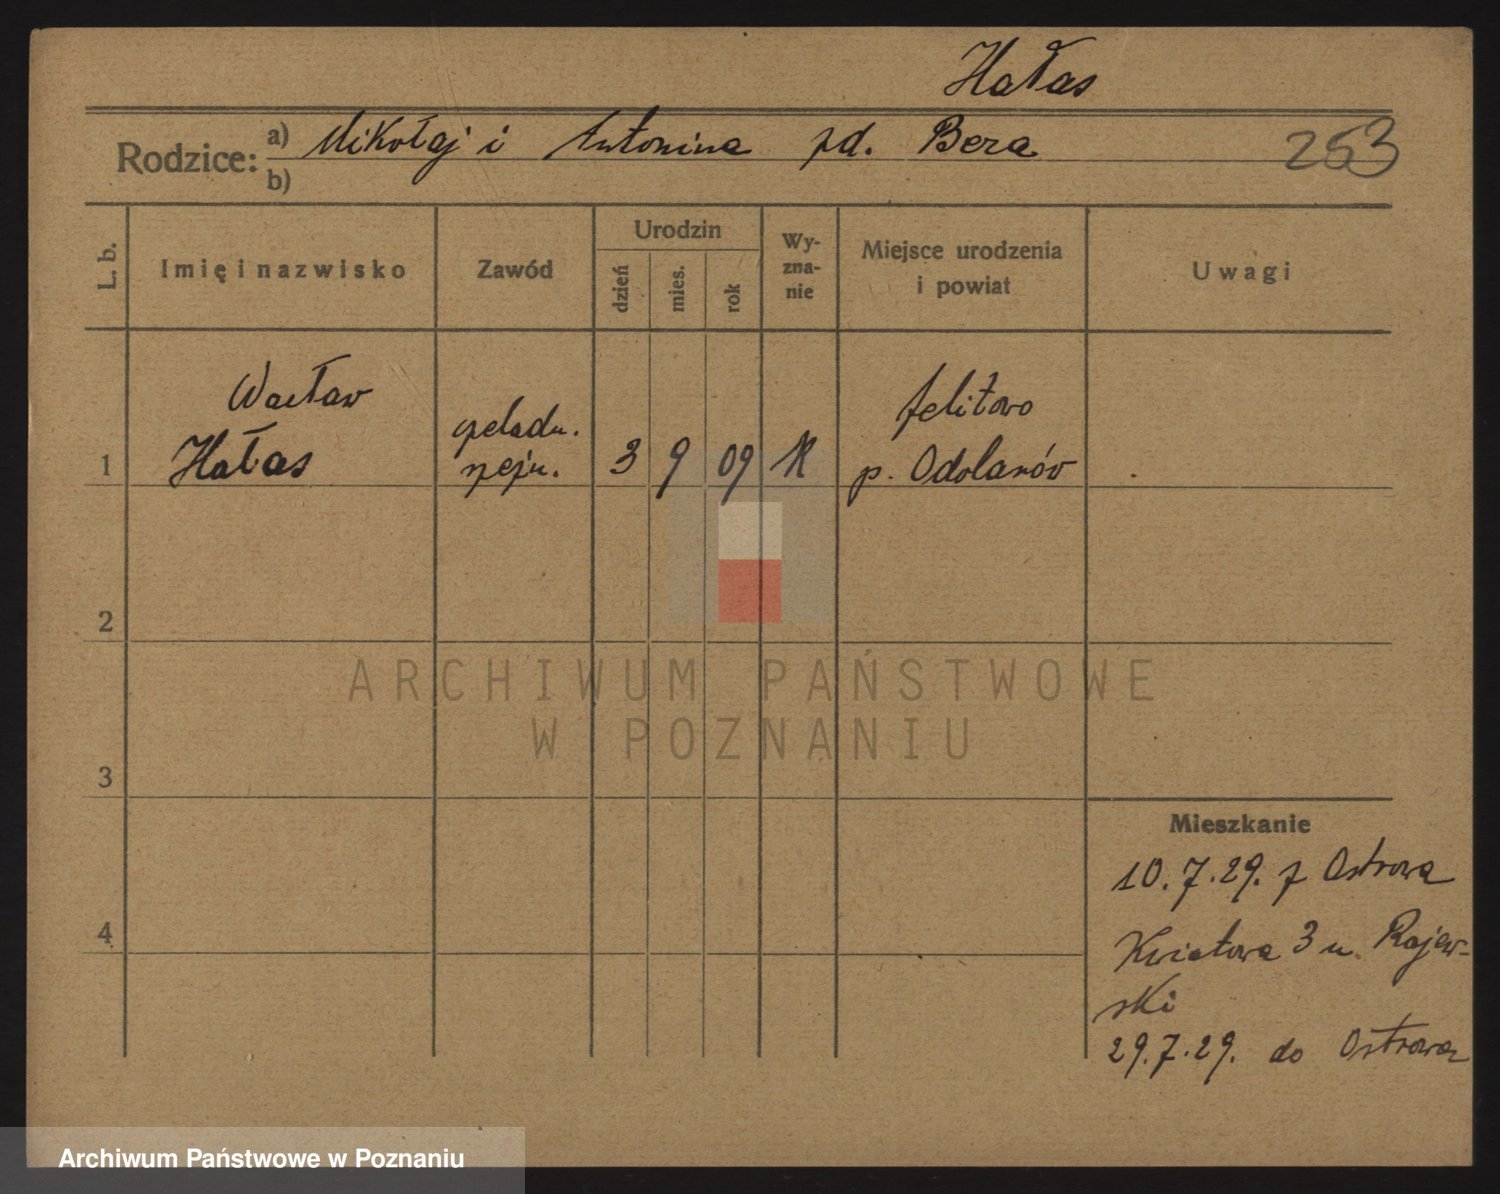 Hałas
Rodzice: a) Mikołaj i Antonina zd. Bera
253
b)
L. b.
Imię i nazwisko
Zawód
Urodzin
dzień
mies.
rok
Wy-
zna-
nie
Miejsce urodzenia
i powiat
Uwagi
Wacław
czeladn.
1 Hałas
3 9 09 K
p. Odolanów
2
3
4
Mieszkanie
10.7.29. z Ostrowa
Kwiatowa 3 u. Rajew-
ski
29.7.29. do Ostrowa
ARCHIWUM PAŃSTWOWE
W POZNANIU
Archiwum Państwowe w Poznaniu